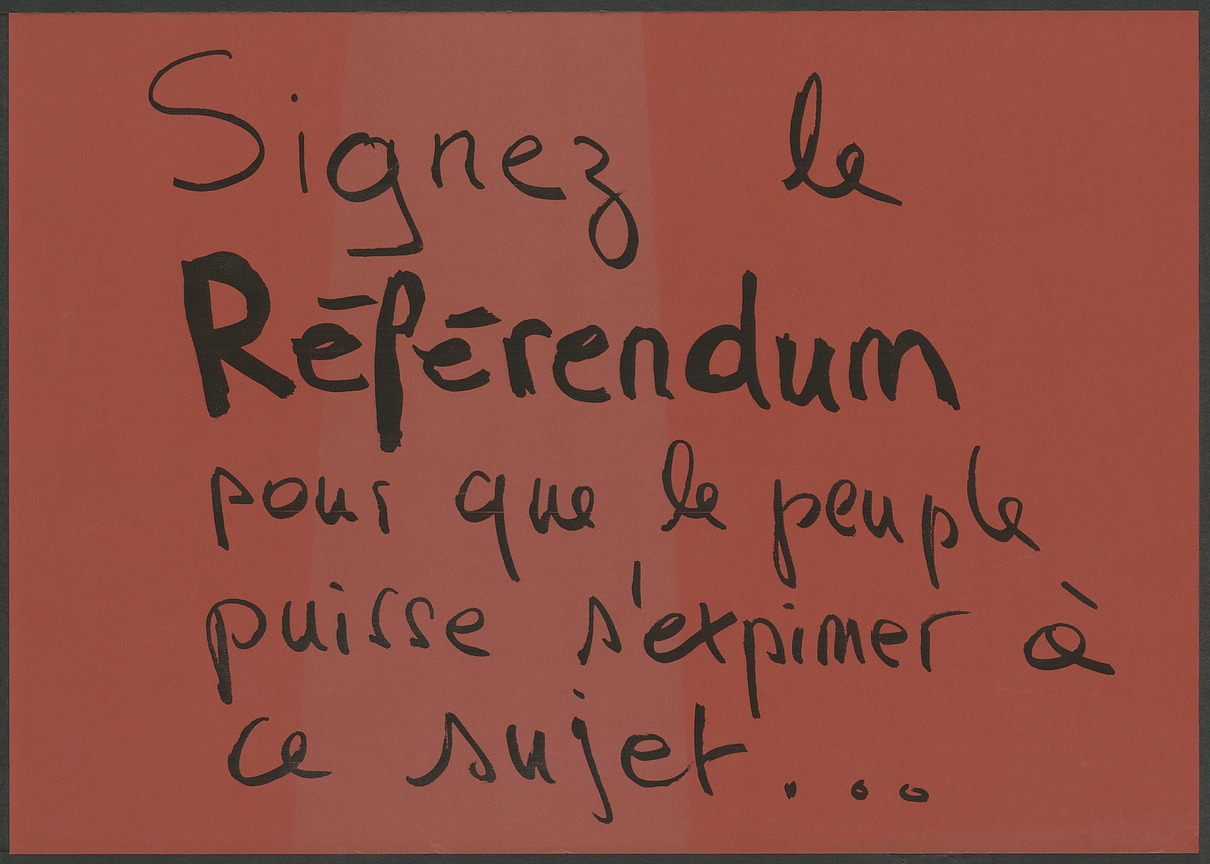 Signez le
Référendum
pour que le peuple
puisse s'expimer à
ce sujet...